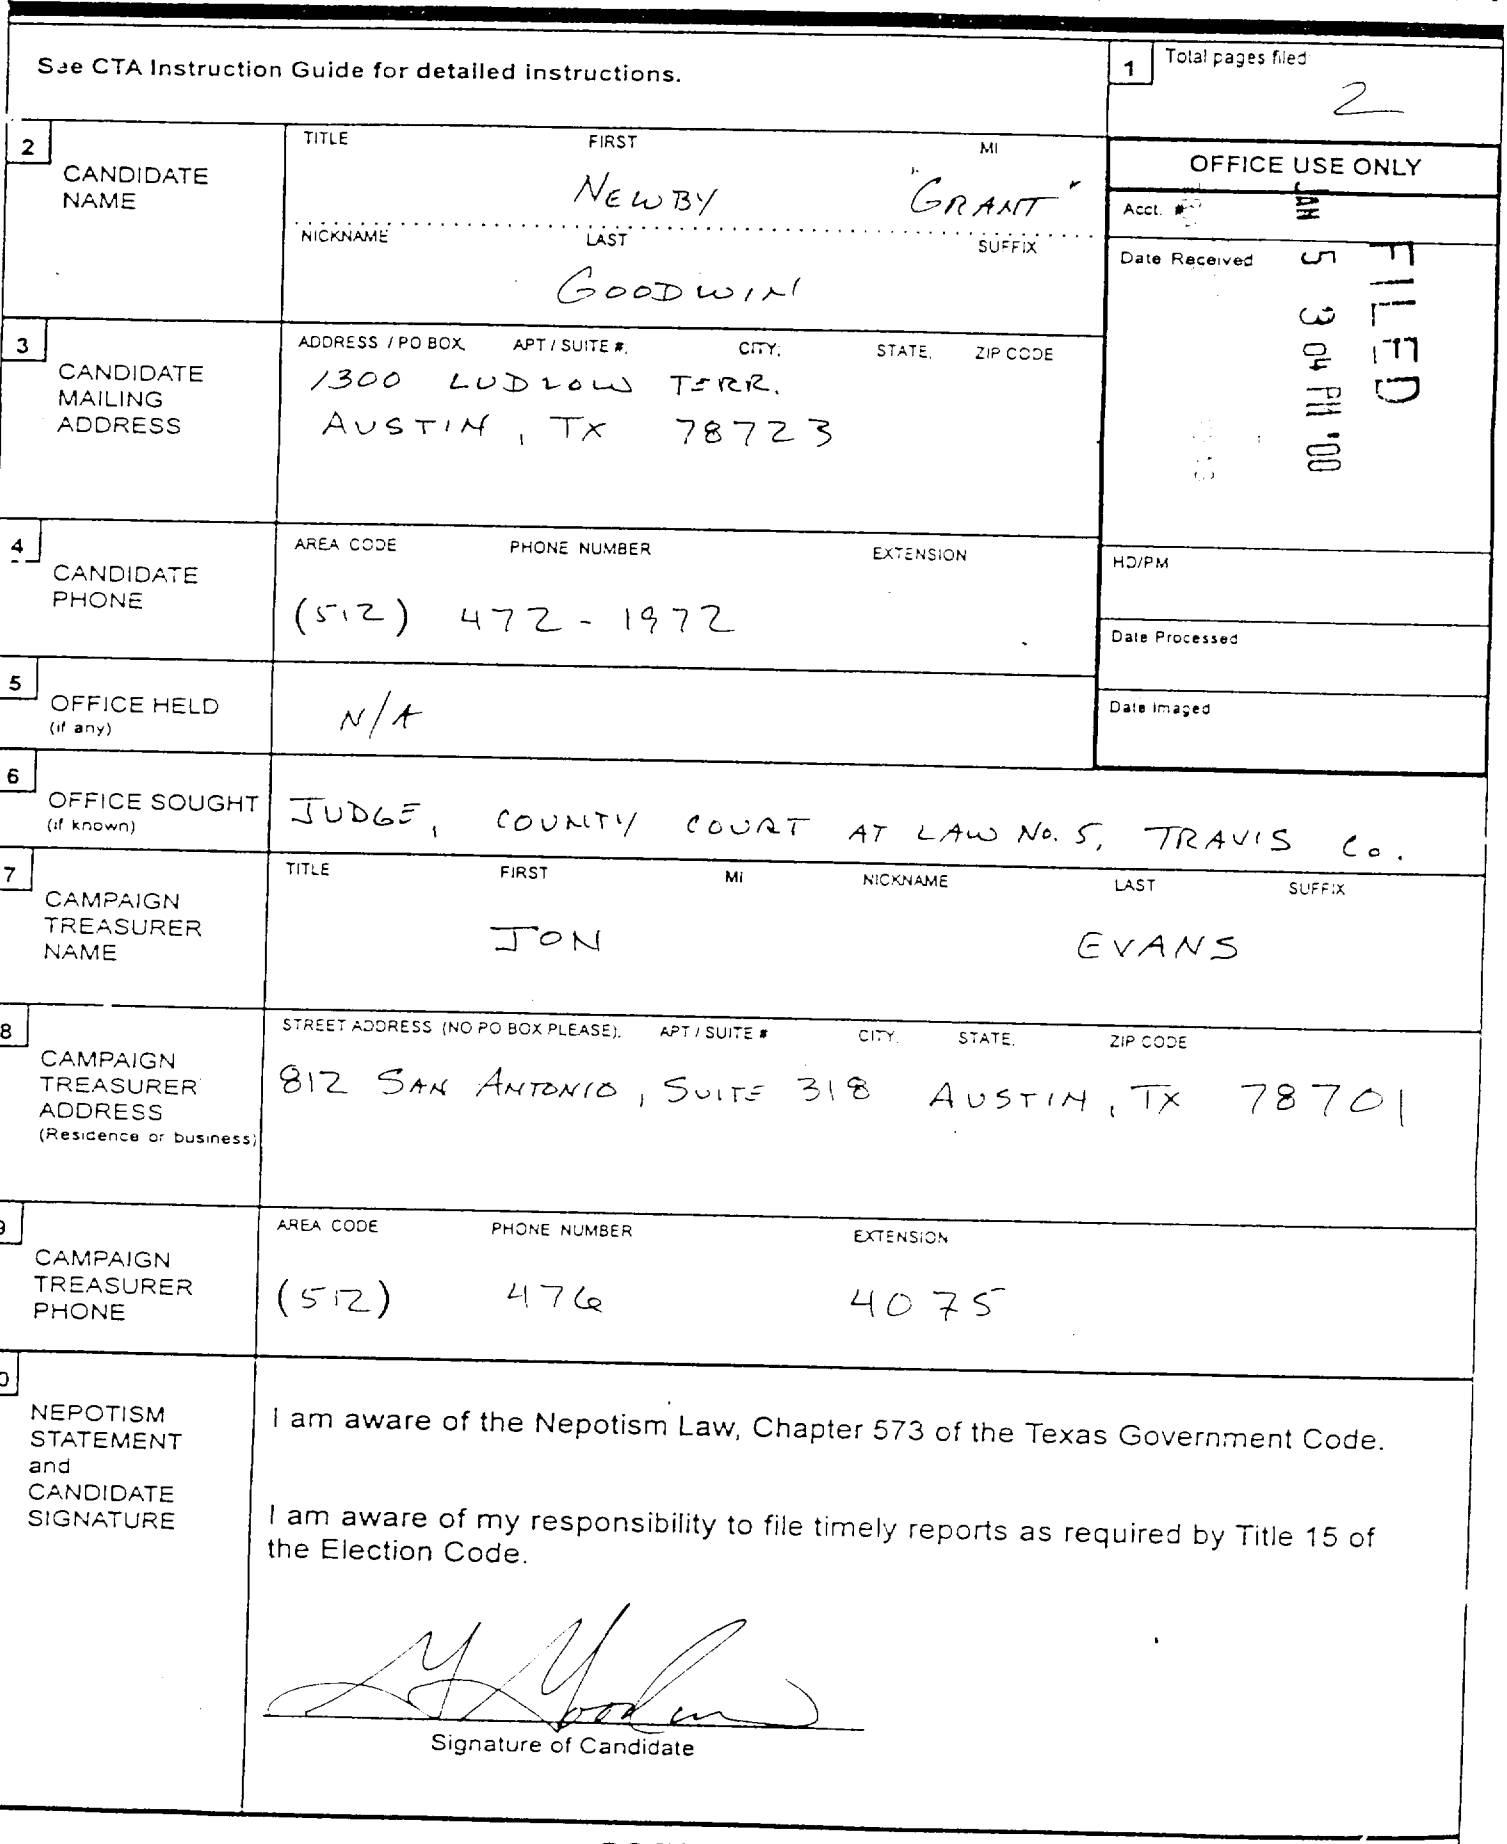 See CTA Instruction Guide for detailed instructions.
1 Total pages filed
2
2 CANDIDATE NAME
TITLE FIRST MI
NEWBY "GRANT"
NICKNAME LAST SUFFIX
GOODWIN
OFFICE USE ONLY
Acct. #
Date Received
FILED
JAN 5 3 04 PM '00
HD/PM
Date Processed
Date Imaged
3 CANDIDATE MAILING ADDRESS
ADDRESS / PO BOX, APT / SUITE #, CITY, STATE, ZIP CODE
1300 LUDLOW TERR.
AUSTIN, TX 78723
4 CANDIDATE PHONE
AREA CODE PHONE NUMBER EXTENSION
(512) 472-1972
5 OFFICE HELD
(if any)
N/A
6 OFFICE SOUGHT
(if known)
JUDGE, COUNTY COURT AT LAW No. 5, TRAVIS Co.
7 CAMPAIGN TREASURER NAME
TITLE FIRST MI NICKNAME LAST SUFFIX
JON EVANS
8 CAMPAIGN TREASURER ADDRESS
(Residence or business)
STREET ADDRESS (NO PO BOX PLEASE), APT / SUITE # CITY, STATE, ZIP CODE
812 SAN ANTONIO, SUITE 318 AUSTIN, TX 78701
9 CAMPAIGN TREASURER PHONE
AREA CODE PHONE NUMBER EXTENSION
(512) 476 4075
NEPOTISM STATEMENT and CANDIDATE SIGNATURE
I am aware of the Nepotism Law, Chapter 573 of the Texas Government Code.
I am aware of my responsibility to file timely reports as required by Title 15 of
the Election Code.
G Goodwin
Signature of Candidate